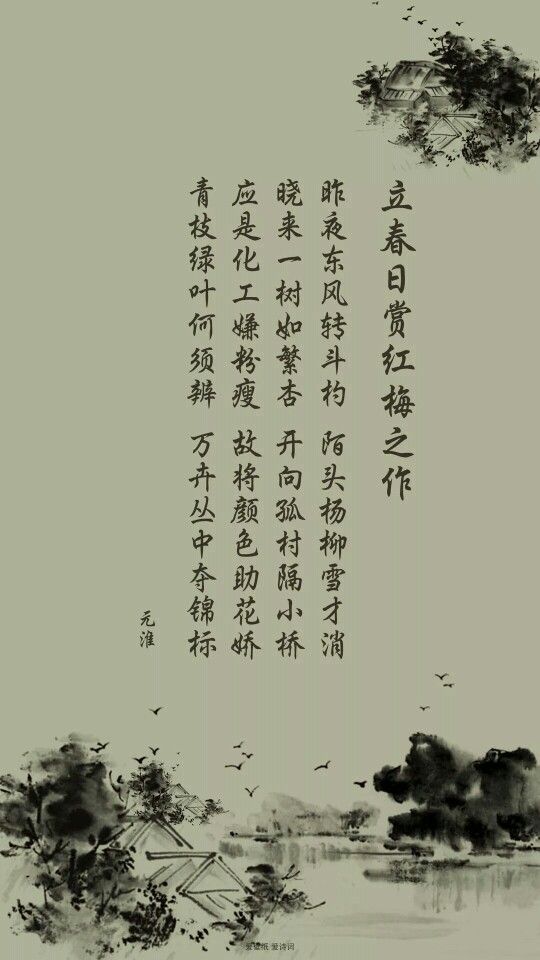 立春日赏红梅之作
昨夜东风转斗杓 陌头杨柳雪才消
晓来一树如繁杏 开向孤村隔小桥
应是化工嫌粉瘦 故将颜色助花娇
青枝绿叶何须辨 万卉丛中夺锦标
元淮
爱壁纸 爱诗词